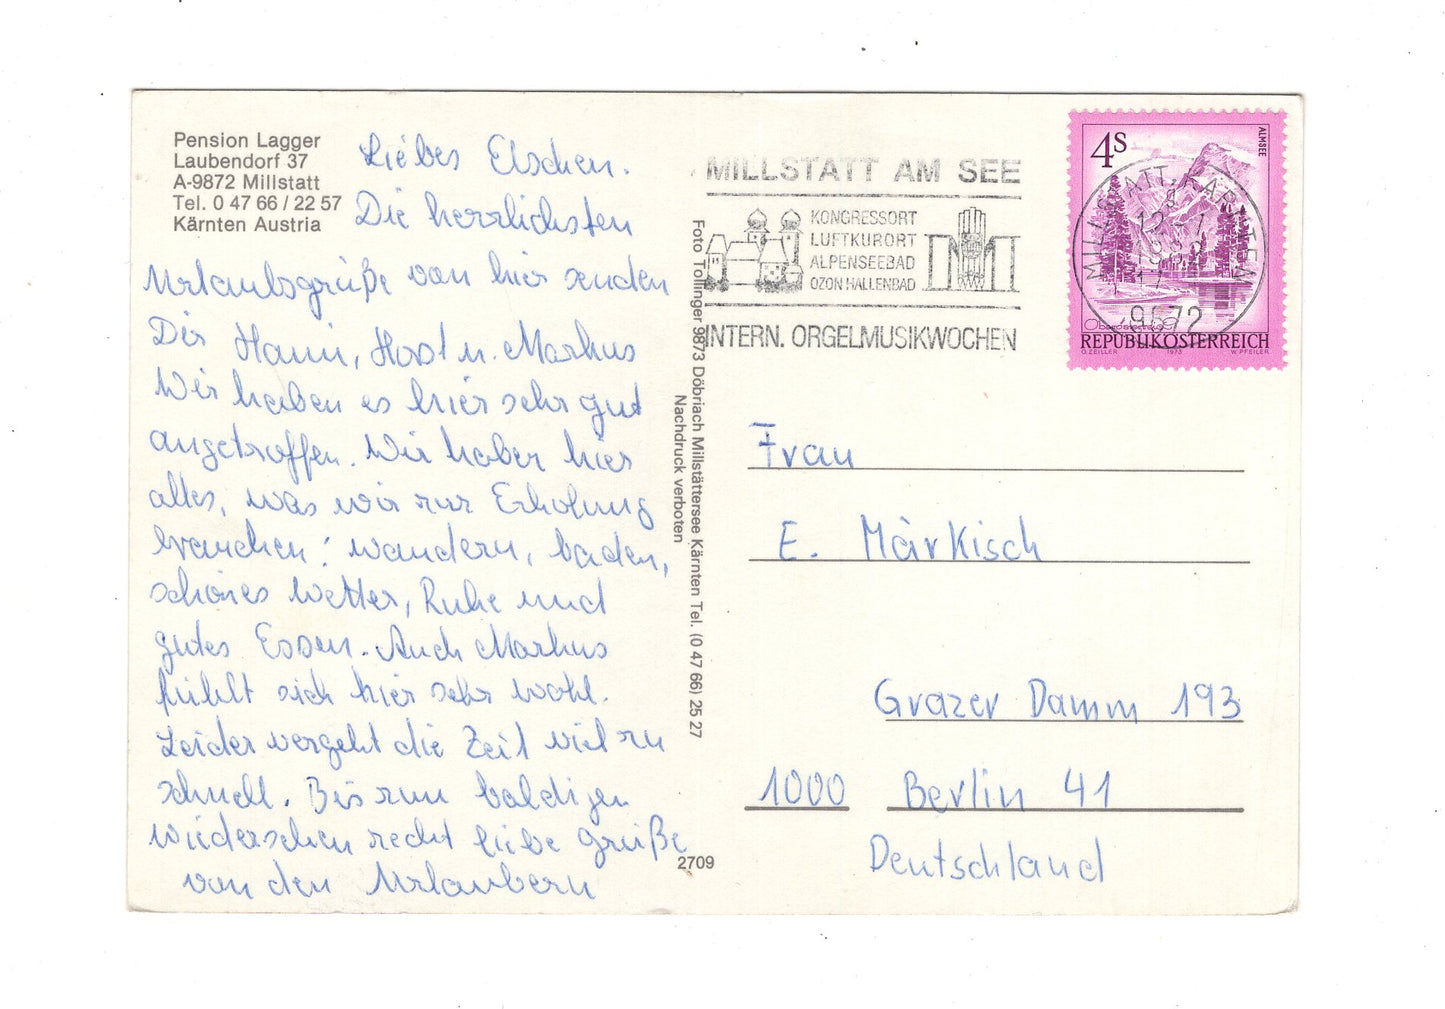 Pension Lagger
Laubendorf 37
A-9872 Millstatt
Tel. 0 47 66 / 22 57
Kärnten Austria
Liebes Elschen.
Die herrlichsten
Urlaubsgrüße von hier senden
Dir Hanni, Horst u. Markus
Wir haben es hier sehr gut
angetroffen. Wir haben hier
alles, was wir zur Erholung
brauchen: wandern, baden,
schönes Wetter, Ruhe und
gutes Essen. Auch Markus
fühlt sich hier sehr wohl.
Leider vergeht die Zeit viel zu
schnell. Bis zum baldigen
Wiedersehen recht liebe Grüße
von den Urlaubern
Foto Tollinger 9873 Döbriach Millstättersee Kärnten Tel. (0 47 66) 25 27
Nachdruck verboten
2709
MILLSTATT AM SEE
KONGRESSORT
LUFTKURORT
ALPENSEEBAD
OZON HALLENBAD
INTERN. ORGELMUSIKWOCHEN
4S
ALMSEE
MILLSTATT, KÄRNTEN
9872
REPUBLIK ÖSTERREICH
O. ZEILLER 1973 W. PFEILER
Frau
E. Märkisch
Grazer Damm 193
1000 Berlin 41
Deutschland